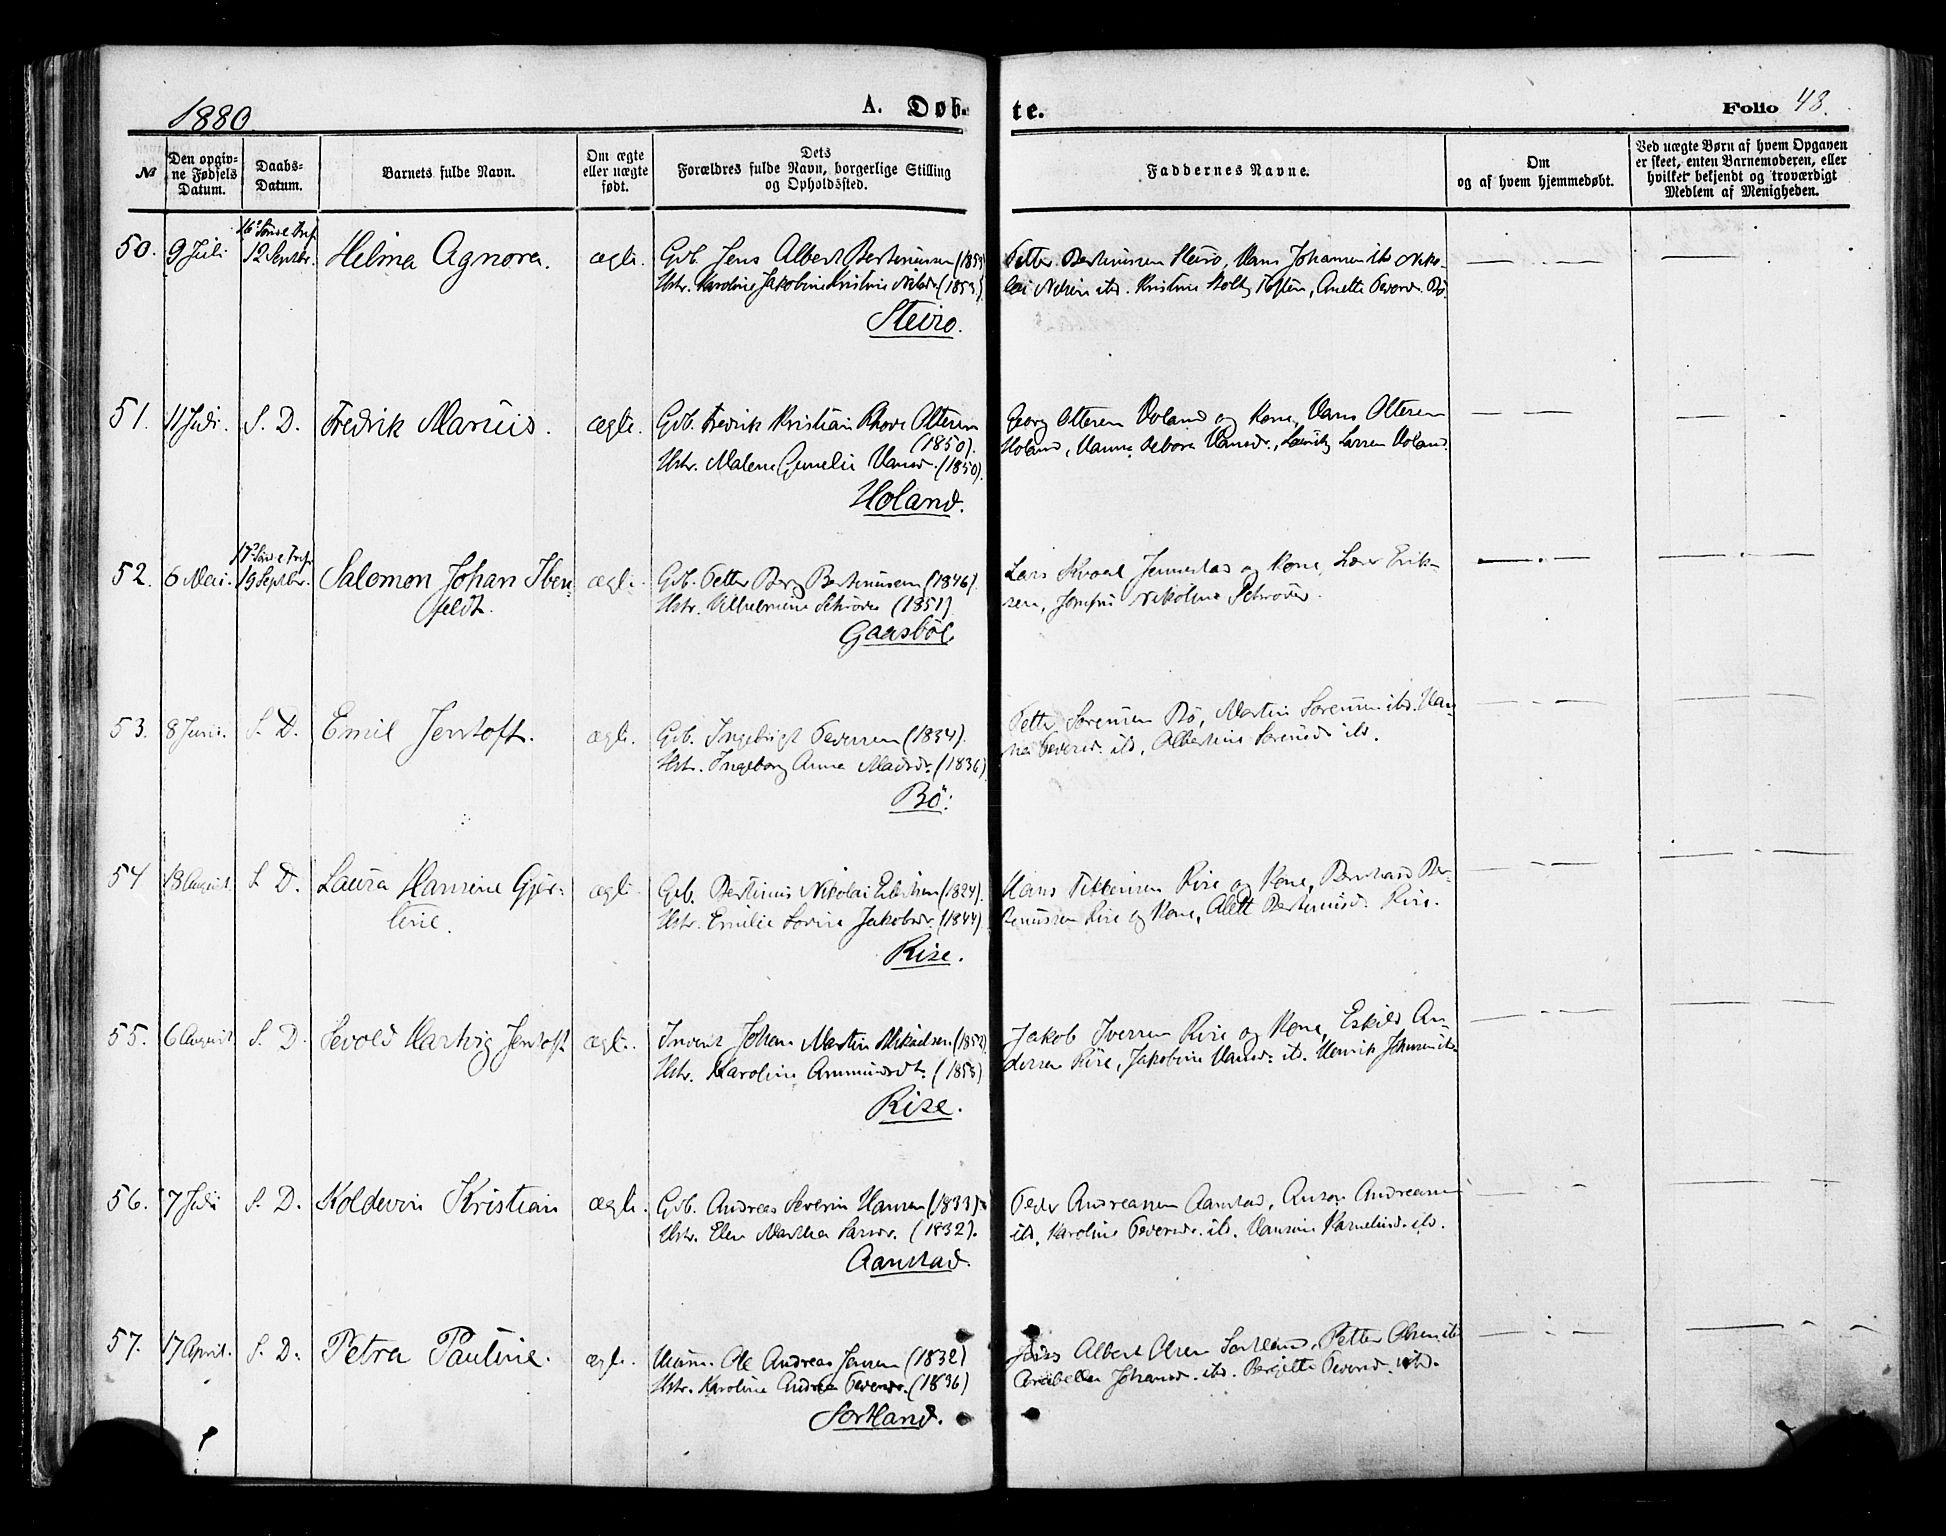 1880.
A. Døb-
te.
Folio 48.
№
Den opgiv-
ne Fødsels
Datum.
Daabs-
Datum.
Barnets fulde Navn.
Om ægte
eller uægte
født.
Dets
Forældres fulde Navn, borgerlige Stilling
og Opholdssted.
Faddernes Navne.
Om
og af hvem hjemmedøbt.
Ved uægte Børn af hvem Opgaven
er skeet, enten Barnemoderen, eller
hvilket bekjendt og troværdigt
Medlem af Menigheden.
50. 9 Juli 12 Septbr. Helma Agnora. ægte. Gdb. Jens Albert Bertinussen
Hstr. Karoline Jakobine Kristine Nilsdr. (1853)
Steiro.
Petter Bertinussen Steiro, Hans Johansen ibd. Niko-
lai Nilsen ibd. Kristine Holty Toften, Anette Pedersd. Bø.
51. 11 Juli. S. D. Fredrik Marius. ægte. Gdb. Fredrik Kristian Rhode Ottesen
(1850).
Hstr. Malene Gunelie Hansd. (1850).
Holand.
Georg Ottesen Holand og Kone, Hans Ottesen
Holand, Hanna Debora Hansd., Lauritz Larsen Holand.
52. 6 Mai. 19 Septbr. Salomon Johan Iben-
feldt. ægte. Gdb. Petter Berg Bertinusen (1846).
Hstr. Vilhelmine Schrøder (1851)
Gaasbøl.
Lars Kvaal Jennestad og Kone, Lærer Erik-
sen, Jomfru Nikoline Schrøder.
53. 8 Juni. S. D. Emil Jentoft. ægte. Gdb. Ingebrigt Pedersen (1834).
Hstr. Ingeborg Anna Madsdr. (1836)
Bø.
Petter Sørensen Bø, Martin Sørensen ibd. Han-
na Pedersd. ibd, Albertine Sørensd. ibd.
54 18 August. S. D. Laura Hansine Gjør-
tine. ægte. Gdb. Bertinus Nikolai Eilertsen (1824).
Hstr. Emilie Lovise Jakobsdr. (1844)
Rise.
Hans Pettersen Rise og Kone, Bernhard Ber-
tinussen Rise og Kone, Alett Bertinusd. Rise.
55. 6 August S. D. Sevold Hartvig Jentoft ægte. Inderst Johan Martin Mikalsen
Hstr. Karoline Ammundsdt. (1858)
Rise.
Jakob Iversen Rise og Kone, Eskild An-
dersen Rise, Jakobine Hansd. ibd. Henrik Johnsen ibd.
56. 7 Juli S. D. Koldevin Kristian ægte. Gdb. Andreas Severin Hansen (1833).
Hstr. Elen Martha Larsdr. (1832).
Aanstad.
Peder Andreassen Aanstad, Anton Andreasen
ibd. Karoline Pedersdr. ibd. Hansine Kornelusd. ibd.
57. 17 April. S. D. Petra Pauline. ægte. Husm. Ole Andreas Jensen (1832)
Hstr. Karoline Andrea Pedersdr. (1836)
Sortland.
Jens Albert Olsen Sortland, Petter Olsen ibd
Arabella Johansd. ibd. Bergitte Pedersd. ibd.